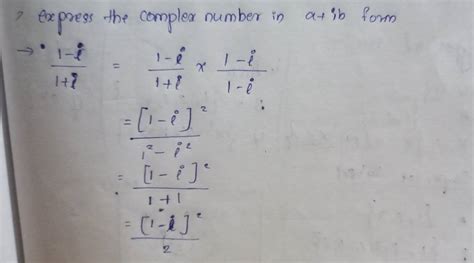 ? express the complex number in a+ib form
→ • 1-i/1+i = 1-i/1+i × 1-i/1-i
= [1-i]²/1²-i²
= [1-i]²/1+1
= [1-i]²/2